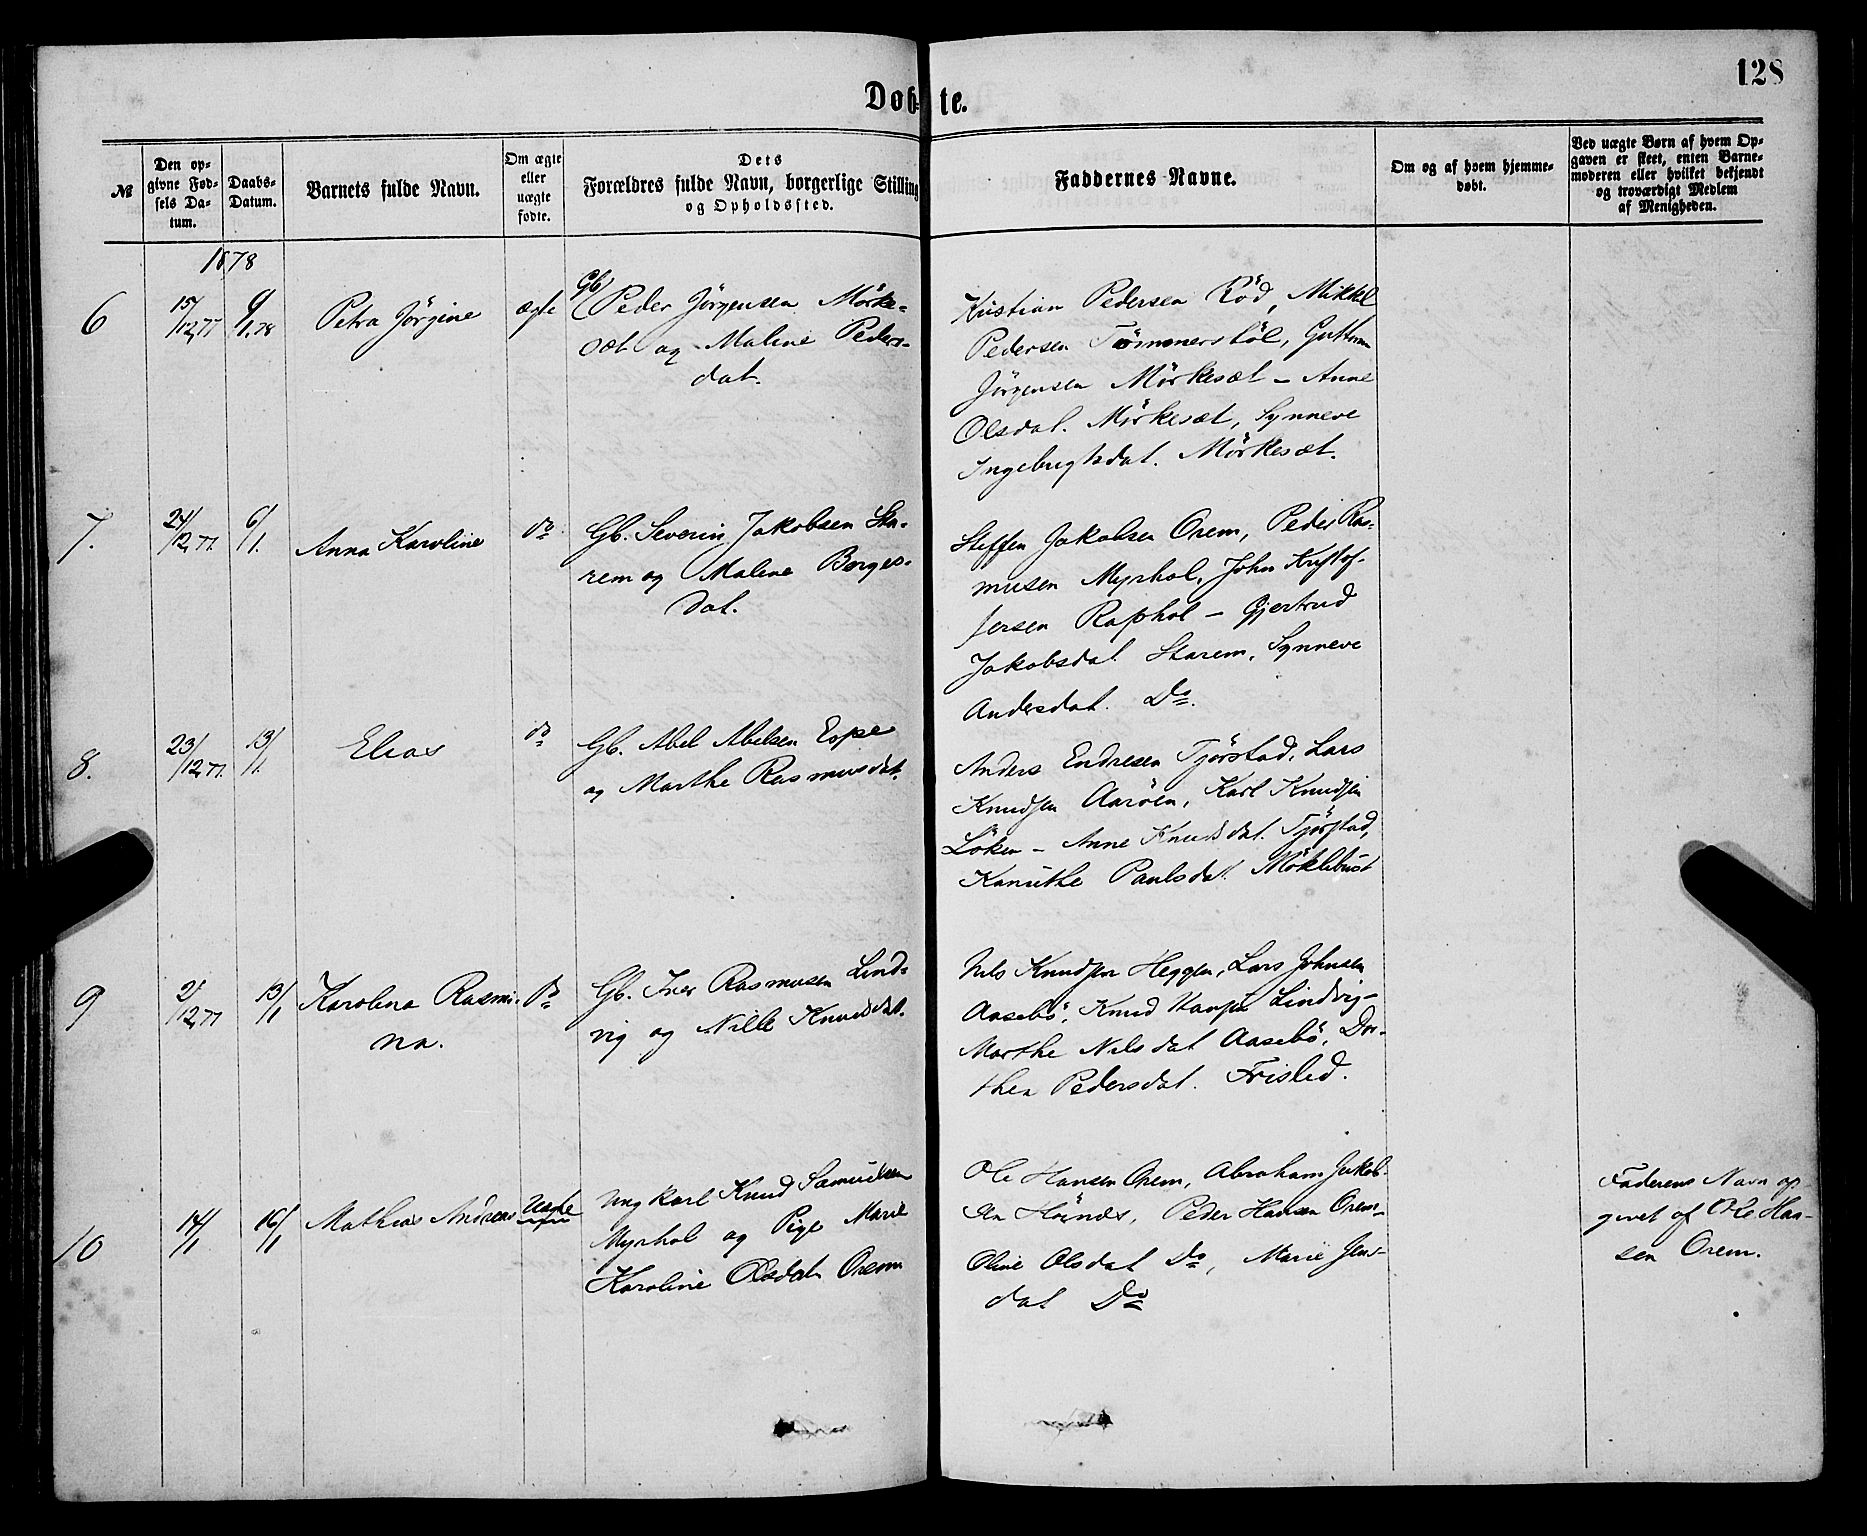 128
Døbte.
№
Den op-
givne Fød-
sels Da-
tum.
Daabs-
Datum.
Barnets fulde Navn.
Om ægte
eller
uægte
fødte.
Dets
Forældres fulde Navn, borgerlige Stilling
og Opholdssted.
Faddernes Navne.
Om og af hvem hjemme-
døbt.
Ved uægte Børn af hvem Op-
gaven er skeet, enten Barne-
moderen eller hvilket bekjendt
og troværdigt Medlem
af Menigheden.
1878
6
15/12,77
6/1.78
Petra Jörgine
ægte
Gb. Peder Jörgensen Mörke-
sæt og Maline Peders-
dat.
Kristian Pedersen Röd, Mikkel
Pedersen Tömmerstöl, Guttorm
Jörgensen Mörkesæt – Anne
Olsdat. Mörkesæt, Synneve
Ingebrigtsdat. Mörkesæt.
7.
24/12,77.
6/1.
Anna Karoline
do
Gb. Severin Jakobsen Sta-
rem og Maline Borges-
dat.
Steffen Jakobsen Orem, Peder Ras-
musen Myrhol, John Kristof-
fersen Raphol – Gjertrud
Jakobsdat. Starem, Synneve
Andersdat. Do.
8.
23/12,77.
13/1.
Elias
do
Gb. Abel Abelsen Espe
og Marthe Rasmusdat.
Anders Endresen Tjörstad, Lars
Knudsen Aaröen, Karl Knudsen
Löken – Anne Knudsdat. Tjörstad,
Kanuthe Paulsdat. Möklebust
9
2/12,77
13/1
Karolina Rasmi-
na.
do
Gb. Iver Rasmusen Lind-
vig og Nille Knudsdat.
Nils Knudsen Heggen, Lars Johnsen
Aasebö, Knud Lindvig –
Marthe Nilsdat Aasebö, Dor-
thea Pedersdat. Frisled.
10
14/1
16/1
Mathias Andreas
Uægte
Ungkarl Knud Samuelsen
Myrhol og Pige Marie
Karoline Olsdat Orem
Ole Hansen Orem, Abraham Jakob-
sen Hånes, Peder Hansen Orem –
Oline Olsdat Do, Marie Jens-
dat Do
Faderens Navn op-
givet af Ole Han-
sen Orem.